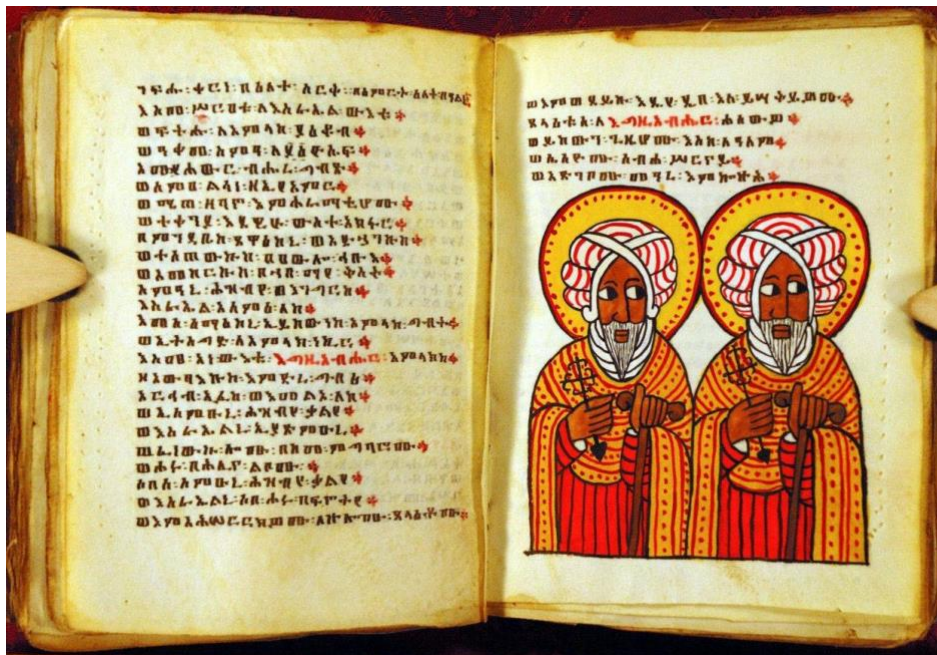 ንፍሑ፡ቀርነ፡በዕለተ፡ሠርቀ፡በእምርት፡ዕለት፡በዓልነ
እስመ፡ሥርዐቱ፡ለእስራኤል፡ውእቱ።
ወፍትሑ፡ለአምላከ፡ያዕቆብ።
ወዓቀመ፡ስምዓ፡ለዮሴፍ።
አመ፡የሐውር፡ብሔረ፡ግብጽ።
ወሰምዐ፡ልሳነ፡ዘኢየአምር።
ወሜጠ፡ዘባኖ፡እምሕራማቲሆሙ።
ወተቀንያ፡እደዊሁ፡ውስተ፡አክፋር።
በምንዳቤከ፡ጸዋዕከኒ፡ወአድኀንኩከ።
ወተሰጠውኩከ፡በዐውሎ፡ኅቡእ።
ወአመከርኩከ፡በኀበ፡ማየ፡ቅስት።
ስምዓኒ፡ሕዝብየ፡ወእንግርከ።
እስራኤል፡ለአምዕ፡ለከ።
እመሰ፡ሰማዕከኒ፡ኢይከውነከ፡አምላከ፡ግብት።
ወኢትስግድ፡ለአምላከ፡ነኪር።
እስመ፡አነ፡ውእቱ፡እግዚአብሔር፡አምላክከ።
ዘአውፃእኩከ፡እምድረ፡ግብፅ።
አርኅብ፡አፉከ፡ወእመልእ፡ለከ።
ወኢሰምዑኒ፡ሕዝብየ፡ቃልየ።
ወእስራኤልኒ፡ኢያጽምዑኒ።
ወፈነውኩ፡ሎሙ፡በከመ፡ምግባሮሙ።
ወሖሩ፡በሕሊና፡ልቦሙ።
ሶበሰ፡ሰምዑኒ፡ሕዝብየ፡ቃልየ።
ወእስራኤልኒ፡ሶበ፡ሖሩ፡በፍኖትየ።
ወእምአሕሠርክዎሙ፡ለኵሎሙ፡ጸላእቶሙ።
ወእምወደይኩ፡እዴየ፡ዲበ፡እለ፡ይሣቅይዎሙ።
ጸላእቱሰ፡ለእግዚአብሔር፡ሐሰውዎ።
ወይከውን፡ጊዜሆሙ፡እስከ፡ለዓለም።
ወሴሰዮሙ፡ስብሐ፡ሥርናይ።
ወአጽገቦሙ፡መዓረ፡እምኰኵሕ።